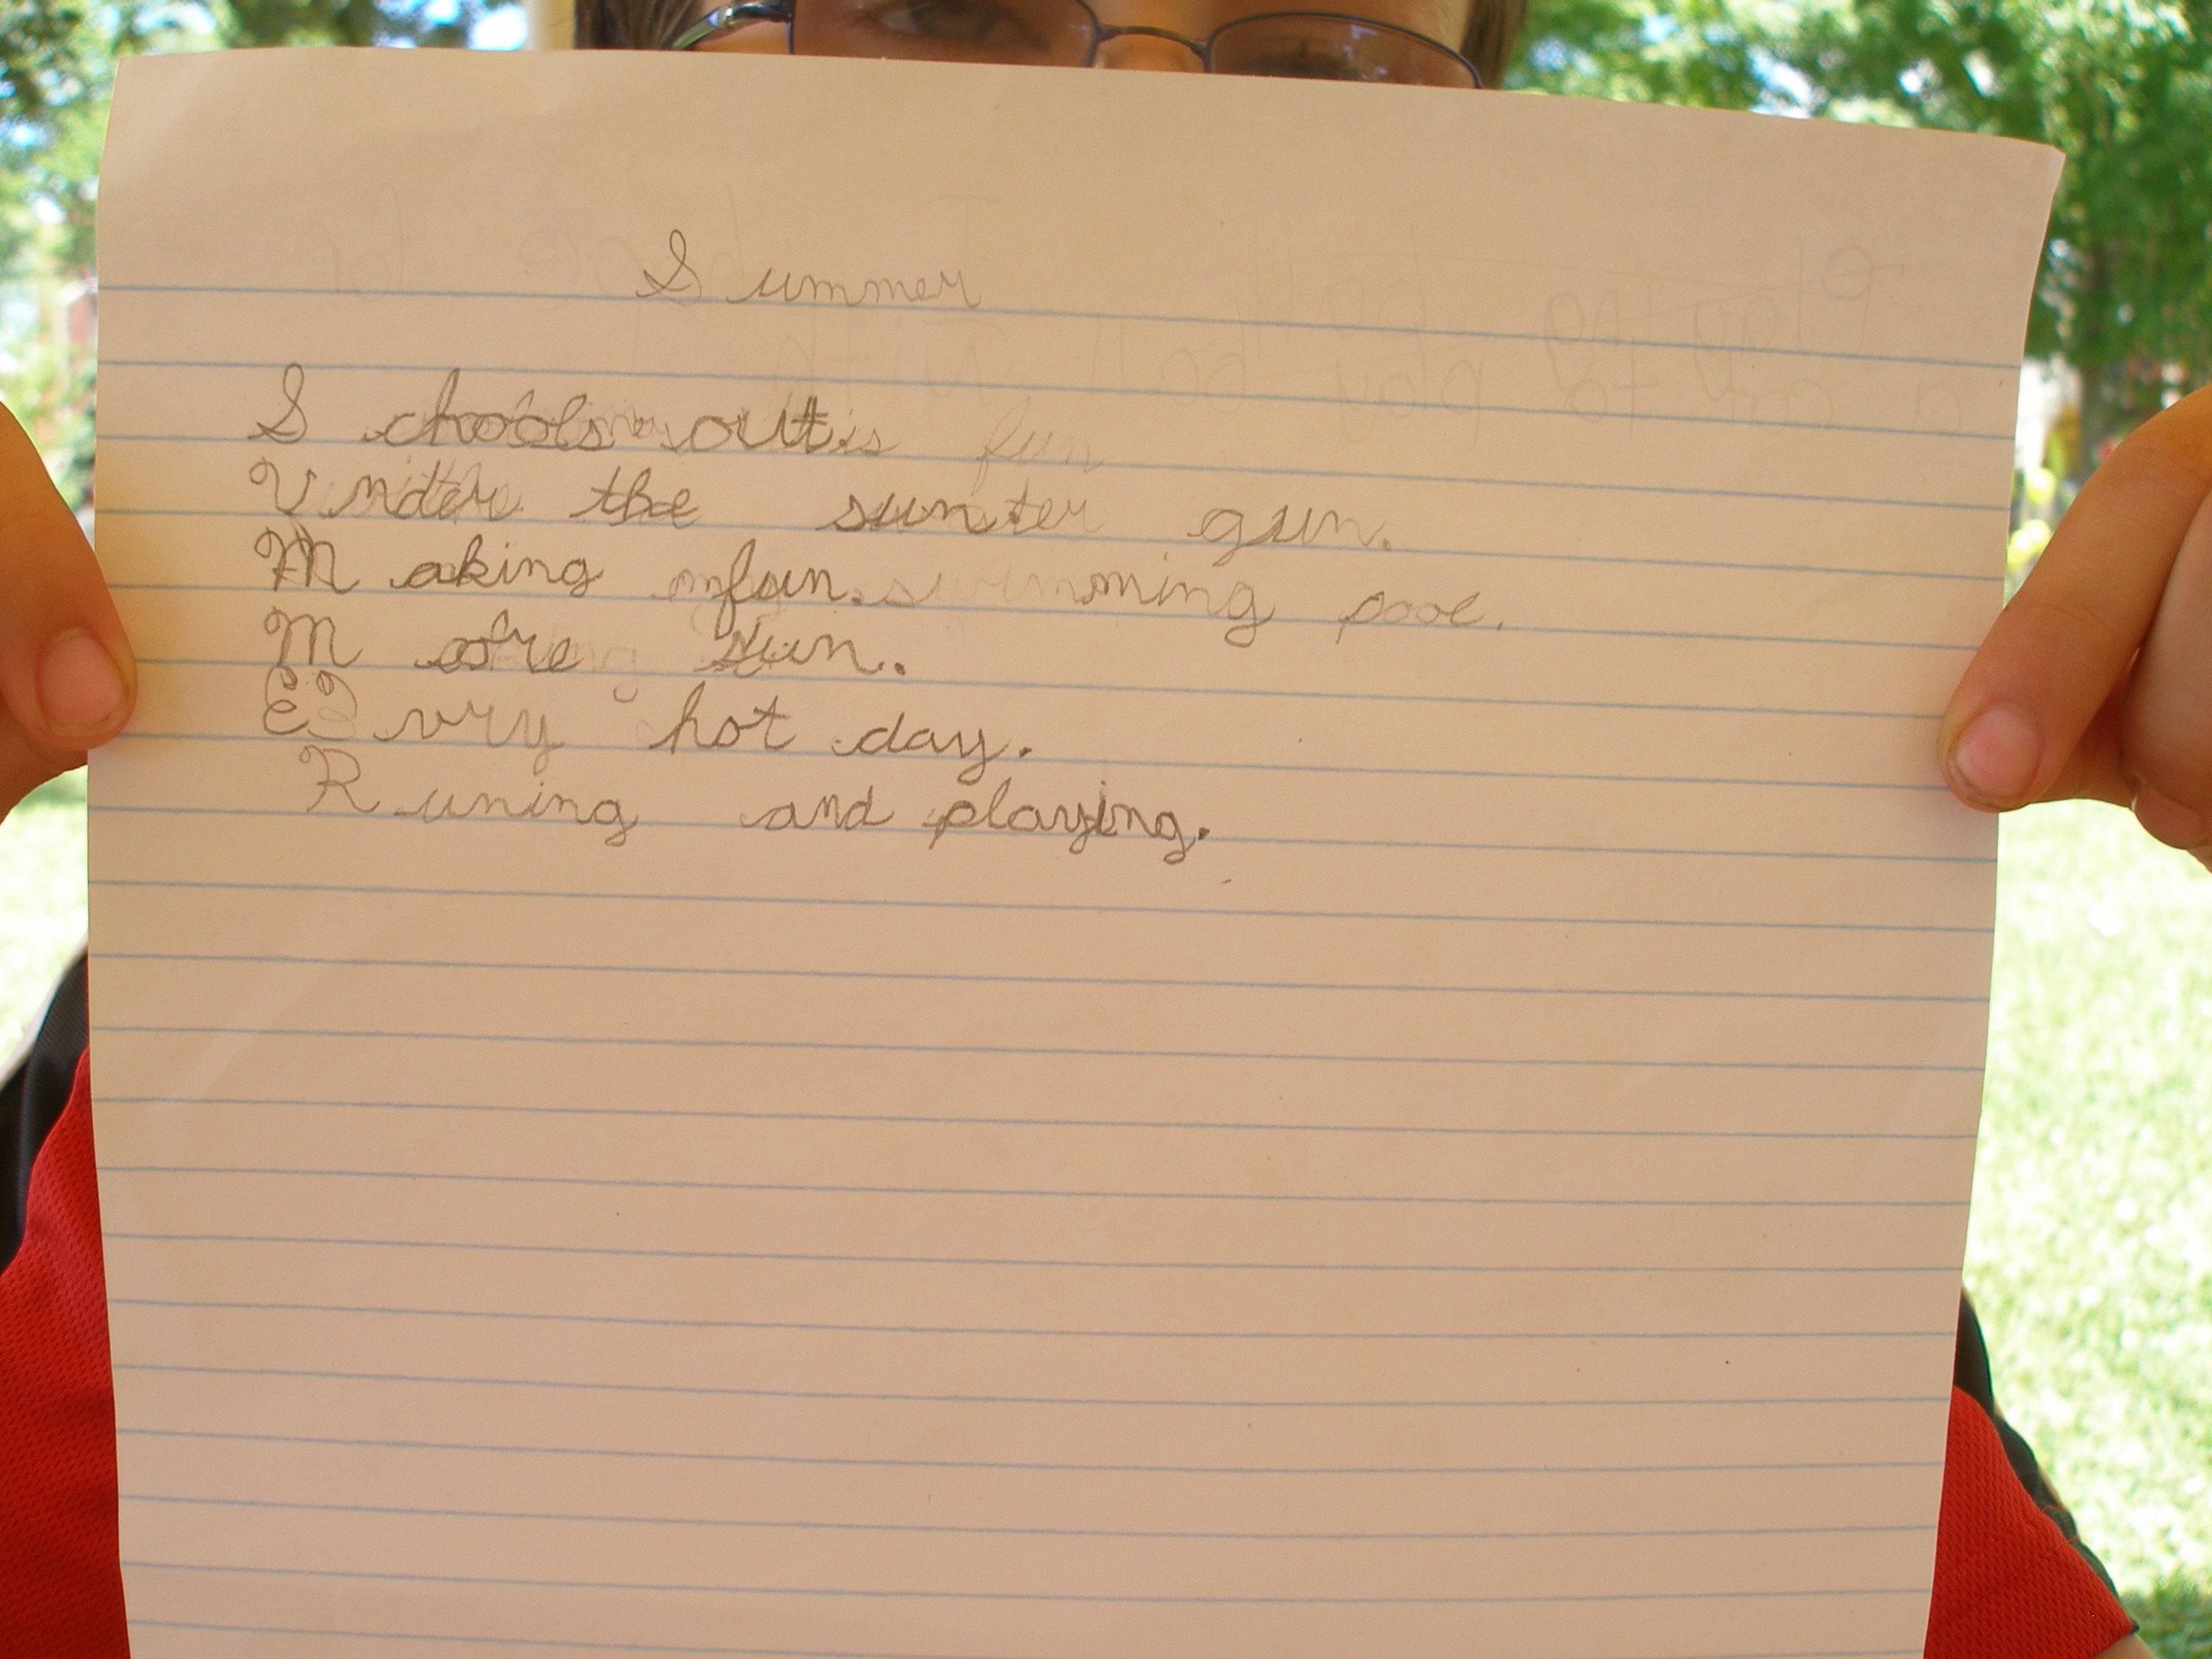 Summer
Schools out. is fun
Under the sun. gun.
Making fun. swimming pool.
More sun.
Evry hot day.
Runing and playing.